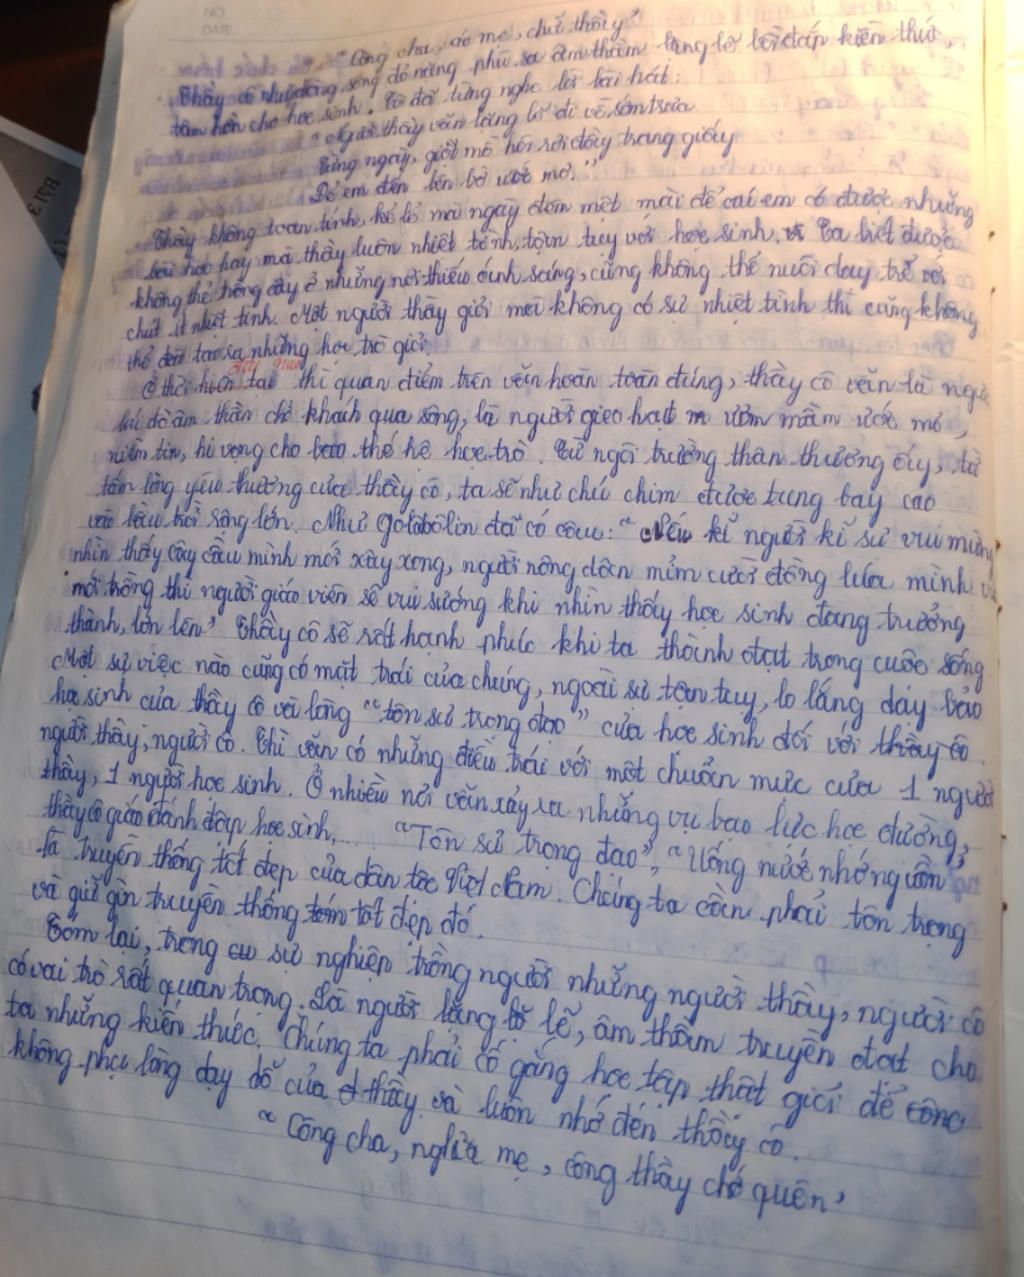 NO
DATE
"Công cha, áo mẹ, chữ thầy"
Thầy cô như dòng sông đỏ nặng phù sa âm thầm lặng lẽ bồi đắp kiến thức,
tâm hồn cho học sinh. Có đã từng nghe lời bài hát:
"Người thầy vẫn lặng lẽ đi về sớm trưa
Từng ngày, giọt mồ hôi rơi đầy trang giấy
Để em đến bên bờ ước mơ."
Thầy không toan tính, kể lể mà ngày đêm miệt mài để cái em có được những
bài học hay mà thầy luôn nhiệt tình, tận tụy với học sinh. Ta biết được
không thể trồng cây ở những nơi thiếu ánh sáng, cũng không thể nuôi dạy trẻ với
chút ít nhiệt tình. Một người thầy giỏi mà không có sự nhiệt tình thì cũng không
thể tạo ra những học trò giỏi.
Ở thời hiện tại thì quan điểm trên vẫn hoàn toàn đúng, thầy cô vẫn là người
lái đò âm thần chở khách qua sông, là người gieo hạt ươm mầm ước mơ,
niềm tin, hi vọng cho bao thế hệ học trò. Từ ngôi trường thân thương ấy, từ
tấm lòng yêu thương của thầy cô, ta sẽ như chú chim được tung bay cao
và bầu trời rộng lớn. Như Gôlôbôlin đã có câu: "Nếu kĩ người kĩ sư vui mừng
nhìn thấy cây cầu mình mới xây xong, người nông dân mỉm cười đồng lúa mình
mới trồng thì người giáo viên sẽ vui sướng khi nhìn thấy học sinh đang trưởng
thành, lớn lên" Thầy cô sẽ rất hạnh phúc khi ta thành đạt trong cuộc sống.
Một sự việc nào cũng có mặt trái của chúng, ngoài sự tận tụy, lo lắng dạy bảo
học sinh của thầy cô với lòng "tôn sư trọng đạo" của học sinh đối với thầy cô.
người thầy, người cô. Thì vẫn có những điều trái với một chuẩn mực của 1 người
thầy, 1 người học sinh. Ở nhiều nơi vẫn xảy ra những vụ bạo lực học đường,
thầy cô giáo đánh đập học sinh,... "Tôn sư trọng đạo", "Uống nước nhớ nguồn"
là truyền thống tốt đẹp của dân tộc Việt Nam. Chúng ta cần phải tôn trọng
và giữ gìn truyền thống tốt đẹp đó.
Tóm lại, trong sự nghiệp trồng người những người thầy, người cô
có vai trò rất quan trọng. Là người lặng lẽ, âm thầm truyền đạt cho
ta những kiến thức. Chúng ta phải cố gắng học tập thật giỏi để công
không phụ lòng dạy dỗ của thầy và luôn nhớ đến thầy cô.
"Công cha, nghĩa mẹ, công thầy chớ quên"